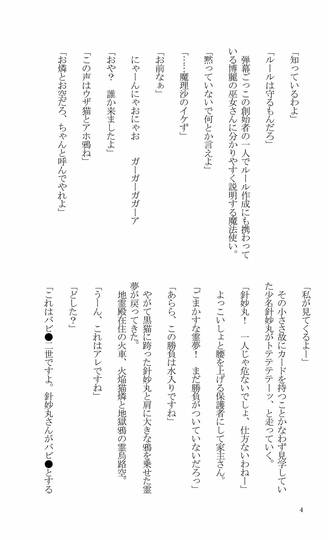 「知っているわよ」
「ルールは守るもんだろ」
弾幕ごっこの創始者の一人でルール作成にも携わって
いる博麗の巫女さんに分かりやすく説明する魔法使い。
「黙っていないで何とか言えよ」
「……魔理沙のイケず」
「お前なぁ」
にゃーんにゃおにゃお　ガーガーガガーア
「おや？　誰か来ましたよ」
「この声はウザ猫とアホ鴉ね」
「お燐とお空だろ、ちゃんと呼んでやれよ」
「私が見てくるよー」
その小ささ故にカードを持つことかなわず見学してい
た少名針妙丸がトテテテテーッ、と走っていく。
「針妙丸！　一人じゃ危ないでしょ、仕方ないわねー」
よっこいしょと腰を上げる保護者にして家主さん。
「ごまかすな霊夢！　まだ勝負がついていないだろっ」
「あらら、この勝負は水入りですね」
やがて黒猫に跨った針妙丸と肩に大きな鴉を乗せた霊
夢が戻ってきた。
地霊殿在住の火車、火焔猫燐と地獄鴉の霊烏路空。
「うーん、これはアレですね」
「どした？」
「これはバビ●二世ですよ。針妙丸さんがバビ●とする
4